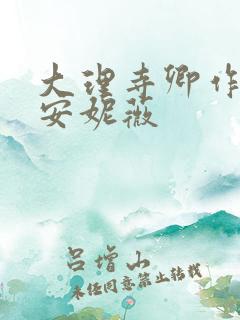 大理寺卿作
安妮薇
吕增山
未经同意禁止转载